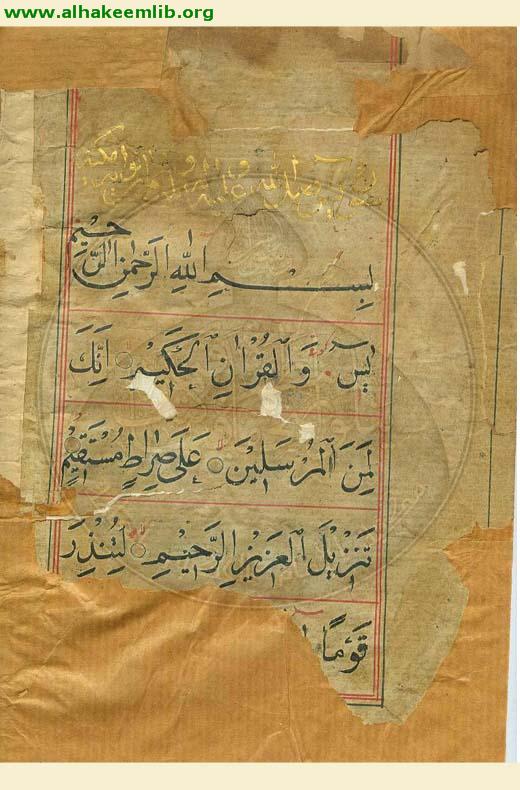 www.alhakeemlib.org
بِسْمِ اللهِ الرَّحْمٰنِ الرَّحِيْمِ
يٰسٓ وَالْقُرْاٰنِ الْحَكِيْمِ اِنَّكَ
لَمِنَ الْمُرْسَلِيْنَ عَلَى صِرَاطٍ مُسْتَقِيْمٍ
تَنْزِيْلَ الْعَزِيْزِ الرَّحِيْمِ لِتُنْذِرَ
قَوْمًا